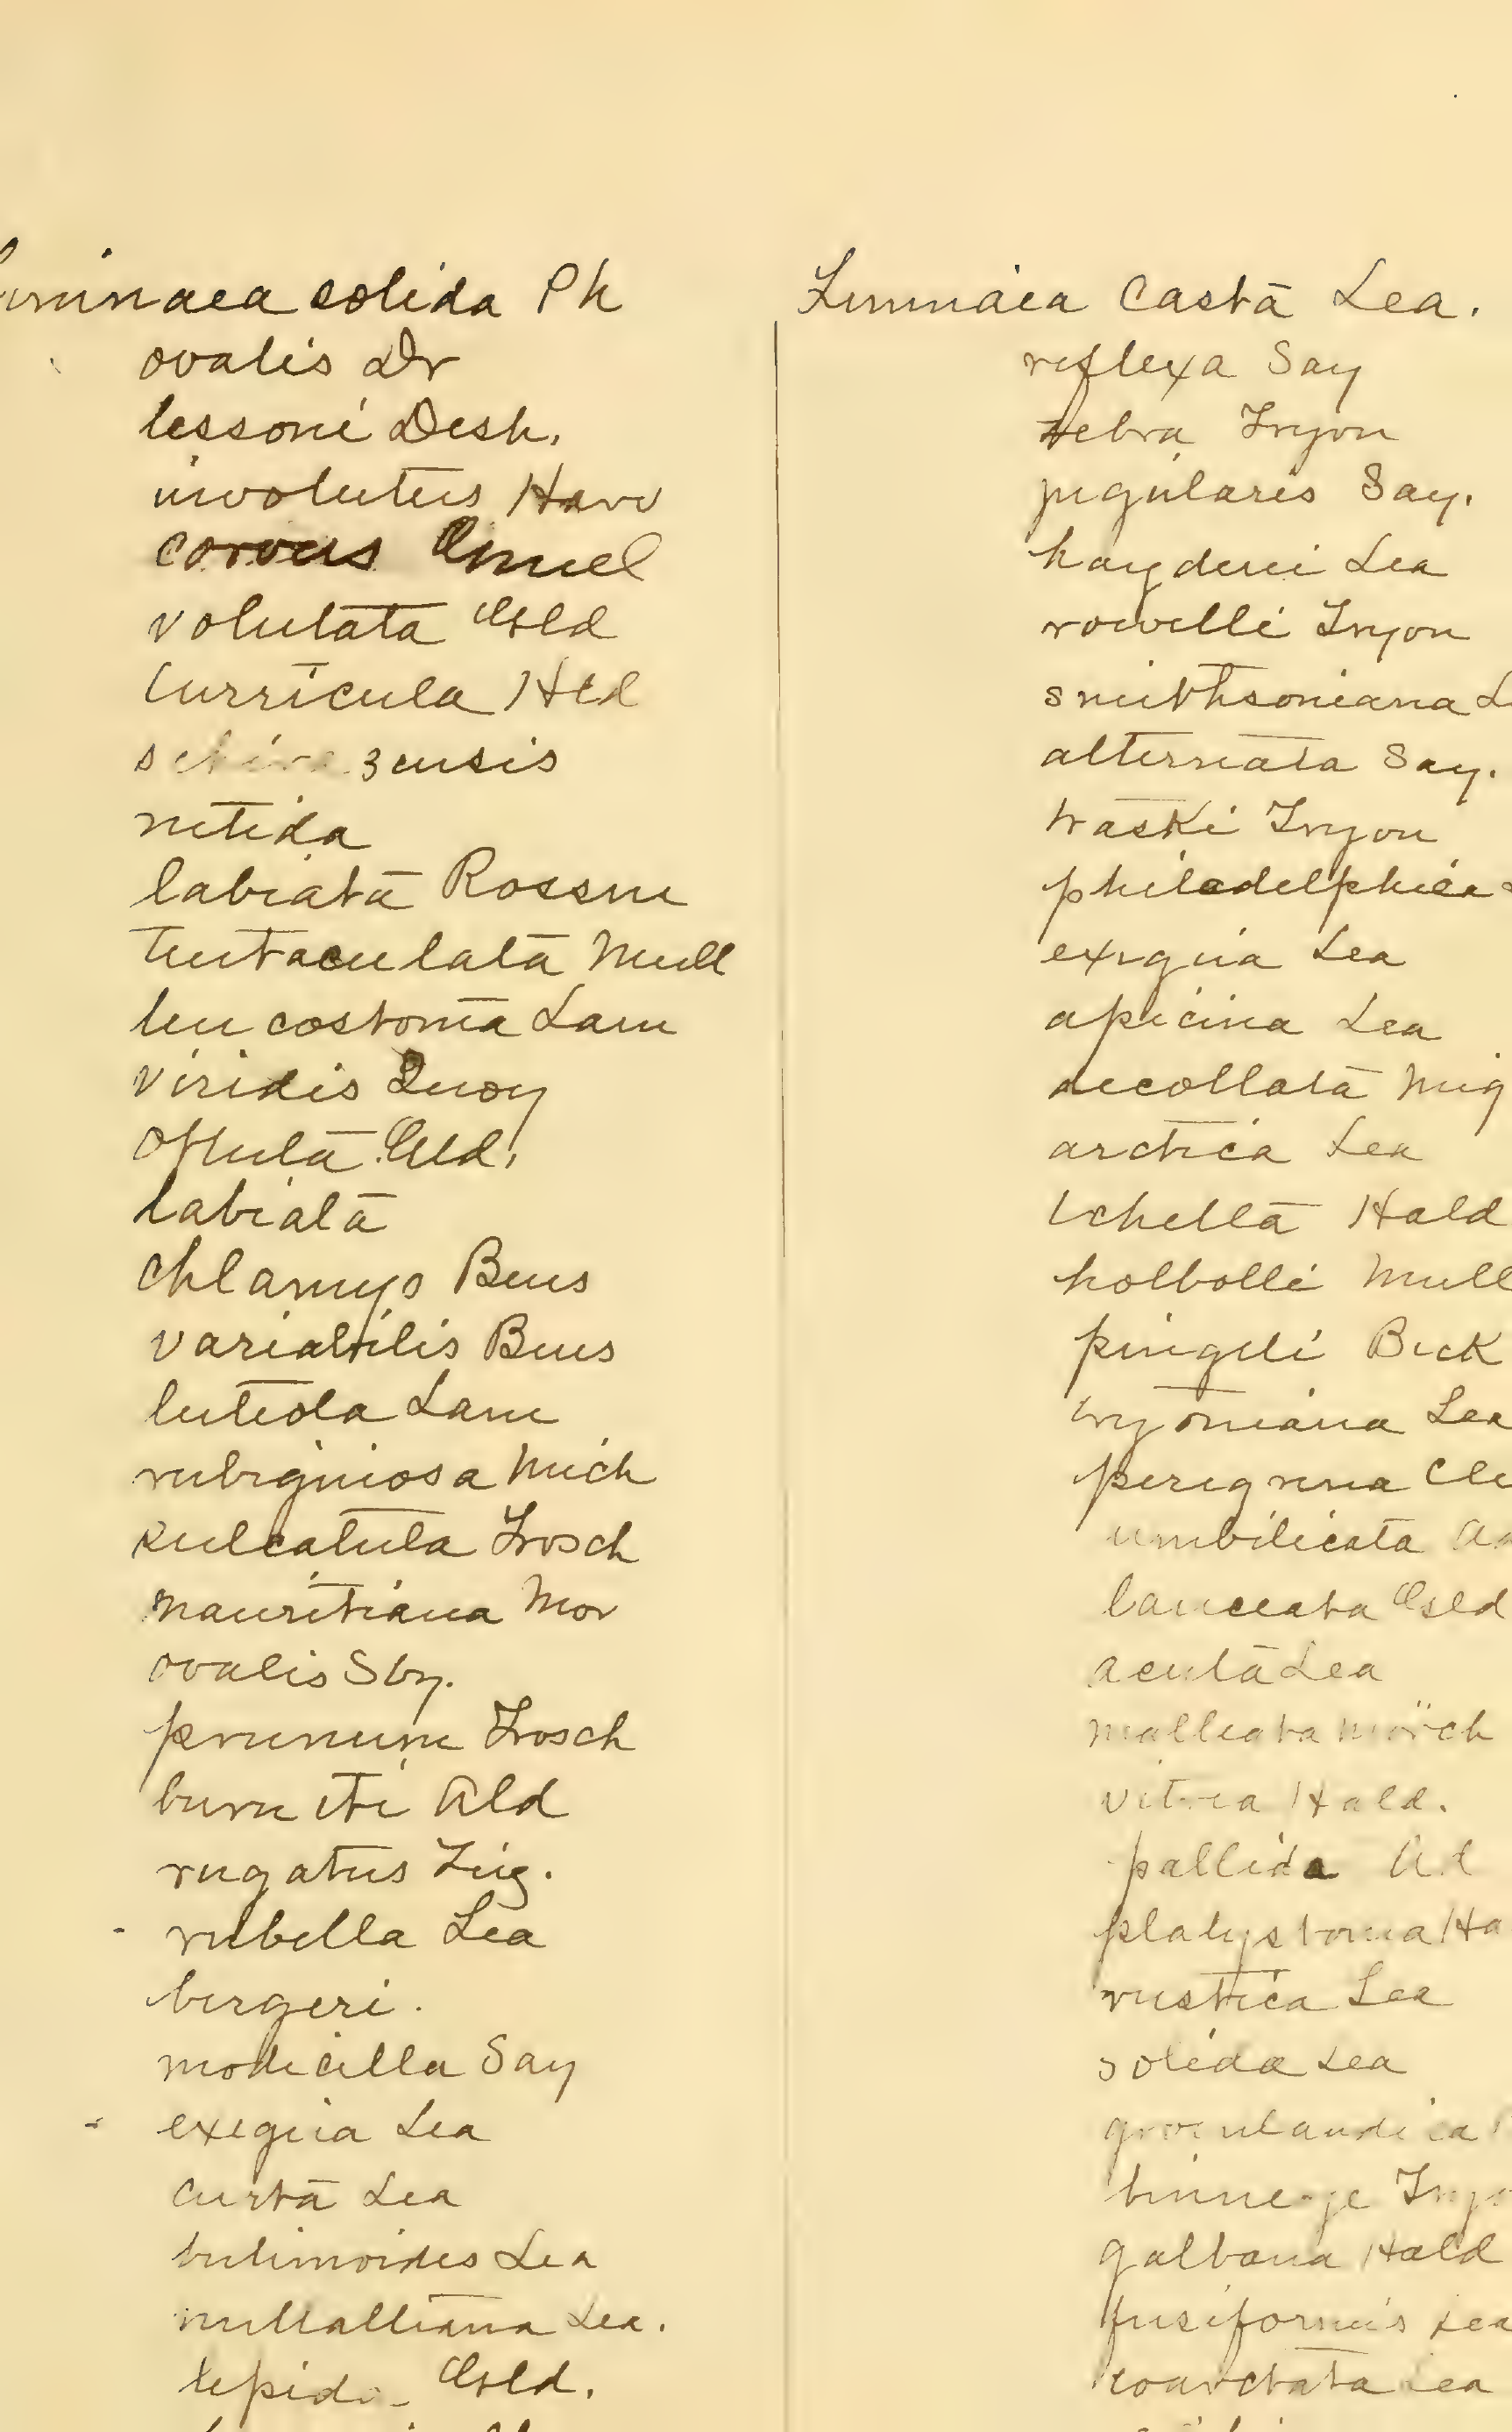 solida Ph
ovalis Dr
lessoni Desh.
involutus Harv
corvus Gmel
volutata Gld
curricula Hld
nitida
labiata Rossm
tentaculata Mull
leucostoma Lam
viridis Quoy
offula Gld.
labiata
chlamys Bens
variabilis Bens
luteola Lam
rubiginosa Mich
sulcatula Trosch
mauritiana Mor
ovalis Sby.
prunum Trosch
burnetti Ald
rugatus Zieg.
rubella Lea
bergeri.
modicella Say
exigua Lea
curta Lea
bulimoides Lea
nuttalliana Lea.
lepida Gld.
Limnaea Casta Lea.
reflexa Say
zebra Tryon
jugularis Say.
haydeni Lea
rowelli Tryon
smithsoniana
alternata Say.
traski Tryon
philadelphica
exigua Lea
apicina Lea
decollata Mig
arctica Lea
ichella Hald
holbolli Mull
pingeli Beck
tryoniana Lea
peregrina
umbilicata
lanceata Gld
acuta Lea
malleata Mörch
vitrea Hald.
pallida Ad
platystoma
rustica Lea
solida Lea
groenlandica
galbana Hald
fusiformis Lea
coarctata Lea